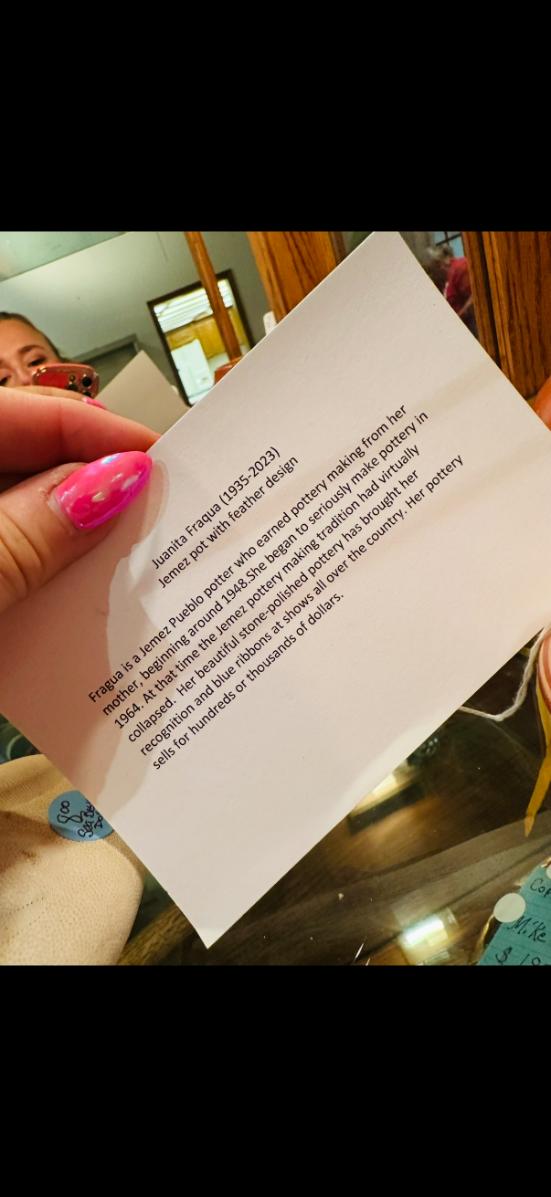 Juanita Fraqua (1935-2023)
Jemez pot with feather design
Fragua is a Jemez Pueblo potter who earned pottery making from her
mother, beginning around 1948.She began to seriously make pottery in
1964. At that time the Jemez pottery making tradition had virtually
collapsed. Her beautiful stone-polished pottery has brought her
recognition and blue ribbons at shows all over the country. Her pottery
sells for hundreds or thousands of dollars.
800
Mike
$